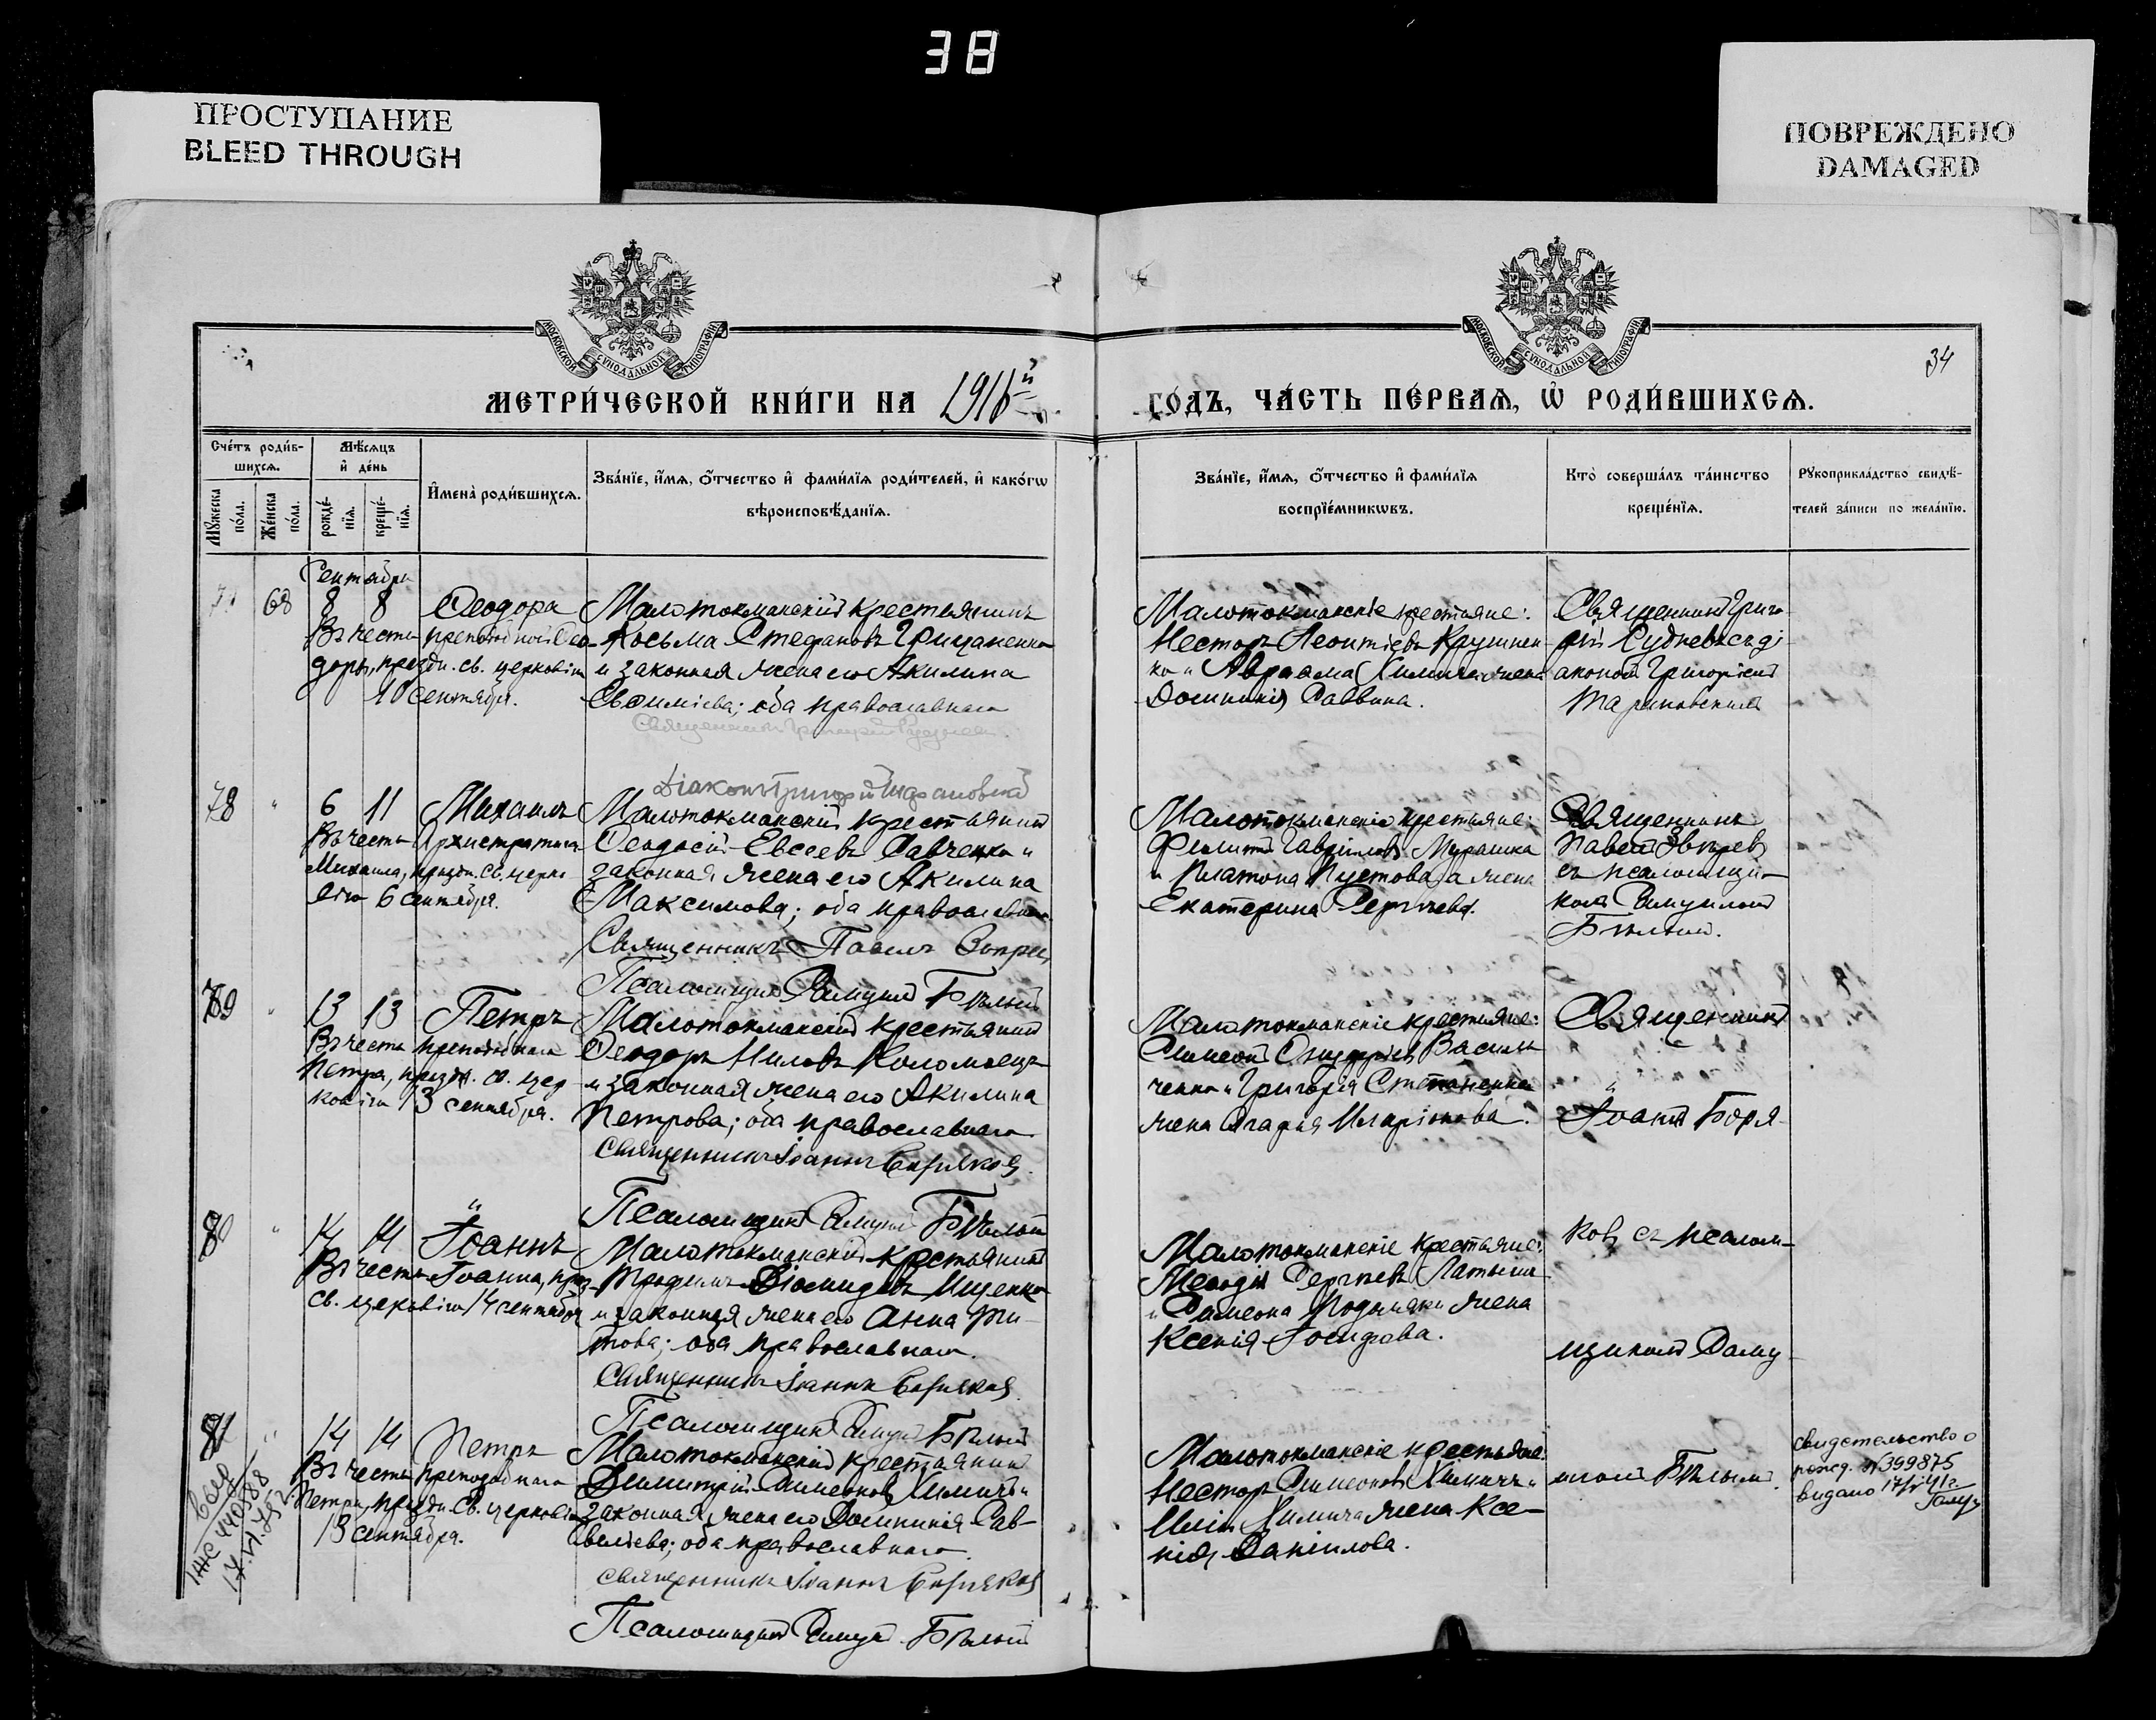 38
ПРОСТУПАНИЕ
BLEED THROUGH
ПОВРЕЖДЕНО
DAMAGED
МОСКОВСКОЙ СѴНОДАЛЬНОЙ ТИПОГРАФІИ
МОСКОВСКОЙ СѴНОДАЛЬНОЙ ТИПОГРАФІИ
34
МЕТРИ́ЧЕСКОЙ КНИ́ГИ НА 1916й
ГО́ДЪ, ЧА́СТЬ ПЕ́РВАѦ, Ѡ҆ РОДИ́ВШИХСѦ.
Сче́тъ роди́в-
шихсѧ.
Мꙋ́жеска по́ла.
Же́нска по́ла.
Мѣ́сѧцъ
и҆ де́нь
рожде́-
нїѧ.
креще́-
нїѧ.
И҆мена̀ роди́вшихсѧ.
Зва́нїе, и҆́мѧ, ѻ҆́тчество и҆ фами́лїѧ роди́телей, и҆ како́гѡ
вѣроисповѣ́данїѧ.
Зва́нїе, и҆́мѧ, ѻ҆́тчество и҆ фами́лїѧ
воспрїе́мникѡвъ.
Кто̀ соверша́лъ та́инство
креще́нїѧ.
Рꙋкоприкла́дство свидѣ́-
телей за́писи по жела́нїю.
Сентябрь
68 8 8 Ѳеодора
Въ честь преподобной Ѳео-
доры, празд. св. церковію
10 сентября.
Малотокмакскій крестьянинъ
Косьма Стефановъ Грицаненко
и законная жена его Акилина
Евѳиміева; оба православнаго
Священникъ Григорій
Діаконъ Григорій
Малотокмакскіе крестьяне:
Несторъ Леонтіевъ
ко и Авраама Химича жена
Домникія Саввина.
Священникъ Григо-
рій Рудневъ съ ді-
акономъ Григоріемъ
78 " 6 11 Михаилъ
Въ честь Архистратига
Михаила, празд. св. церко-
вію 6 сентября.
Малотокмакскій крестьянинъ
Ѳеодосій Евсеевъ Савченко и
законная жена его Акилина
Максимова; оба православнаго
Священникъ Павелъ Звѣревъ
Псаломщикъ Самуилъ Бѣлый
Малотокмакскіе крестьяне:
Филиппъ Гавріиловъ Мурашка
и Платона Пустоваго жена
Екатерина Сергѣева.
Священникъ
Павелъ Звѣревъ
съ псаломщи-
комъ Самуиломъ
Бѣлымъ.
79 " 13 13 Петръ
Въ честь преподобнаго
Петра, празд. св. цер-
ковію 13 сентября.
Малотокмакскій крестьянинъ
Ѳеодоръ Ниловъ Коломоецъ
и законная жена его Акилина
Петрова; оба православнаго
Священникъ Іоаннъ Боряковъ
Псаломщикъ Самуилъ Бѣлый
Малотокмакскіе крестьяне:
Симеонъ Онуфріевъ Василь-
ченко и Григорія Степаненка
жена Марія Иларіонова.
Священникъ
Іоаннъ Боря-
80 " 14 14 Іоаннъ
Въ честь Іоанна, праз.
св. церковію 14 сентября
Малотокмакскій крестьянинъ
Трофимъ Діомидовъ Ищенко
и законная жена его Анна Ти-
това; оба православнаго.
Священникъ Іоаннъ Боряковъ
Псаломщикъ Самуилъ Бѣлый
Малотокмакскіе крестьяне:
Меѳодій Сергѣевъ Латыш
и Симеона жена
Ксенія Іосифова.
ковъ съ псалом-
щикомъ Саму-
81 " 14 14 Петръ
Въ честь преподобнаго
Петра, празд. св. церковію
13 сентября.
Малотокмакскій крестьянинъ
Димитрій Симеоновъ Химичъ и
законная жена его Домникія Сав-
веліева; оба православнаго.
Священникъ Іоаннъ Боряковъ
Псаломщикъ Самуилъ Бѣлый
Малотокмакскіе крестьяне:
Несторъ Симеоновъ Химичъ и
Иліи Химича жена Ксе-
нія Даніилова.
иломъ Бѣлымъ.
свидетельство о
рожд. № 399875
видано